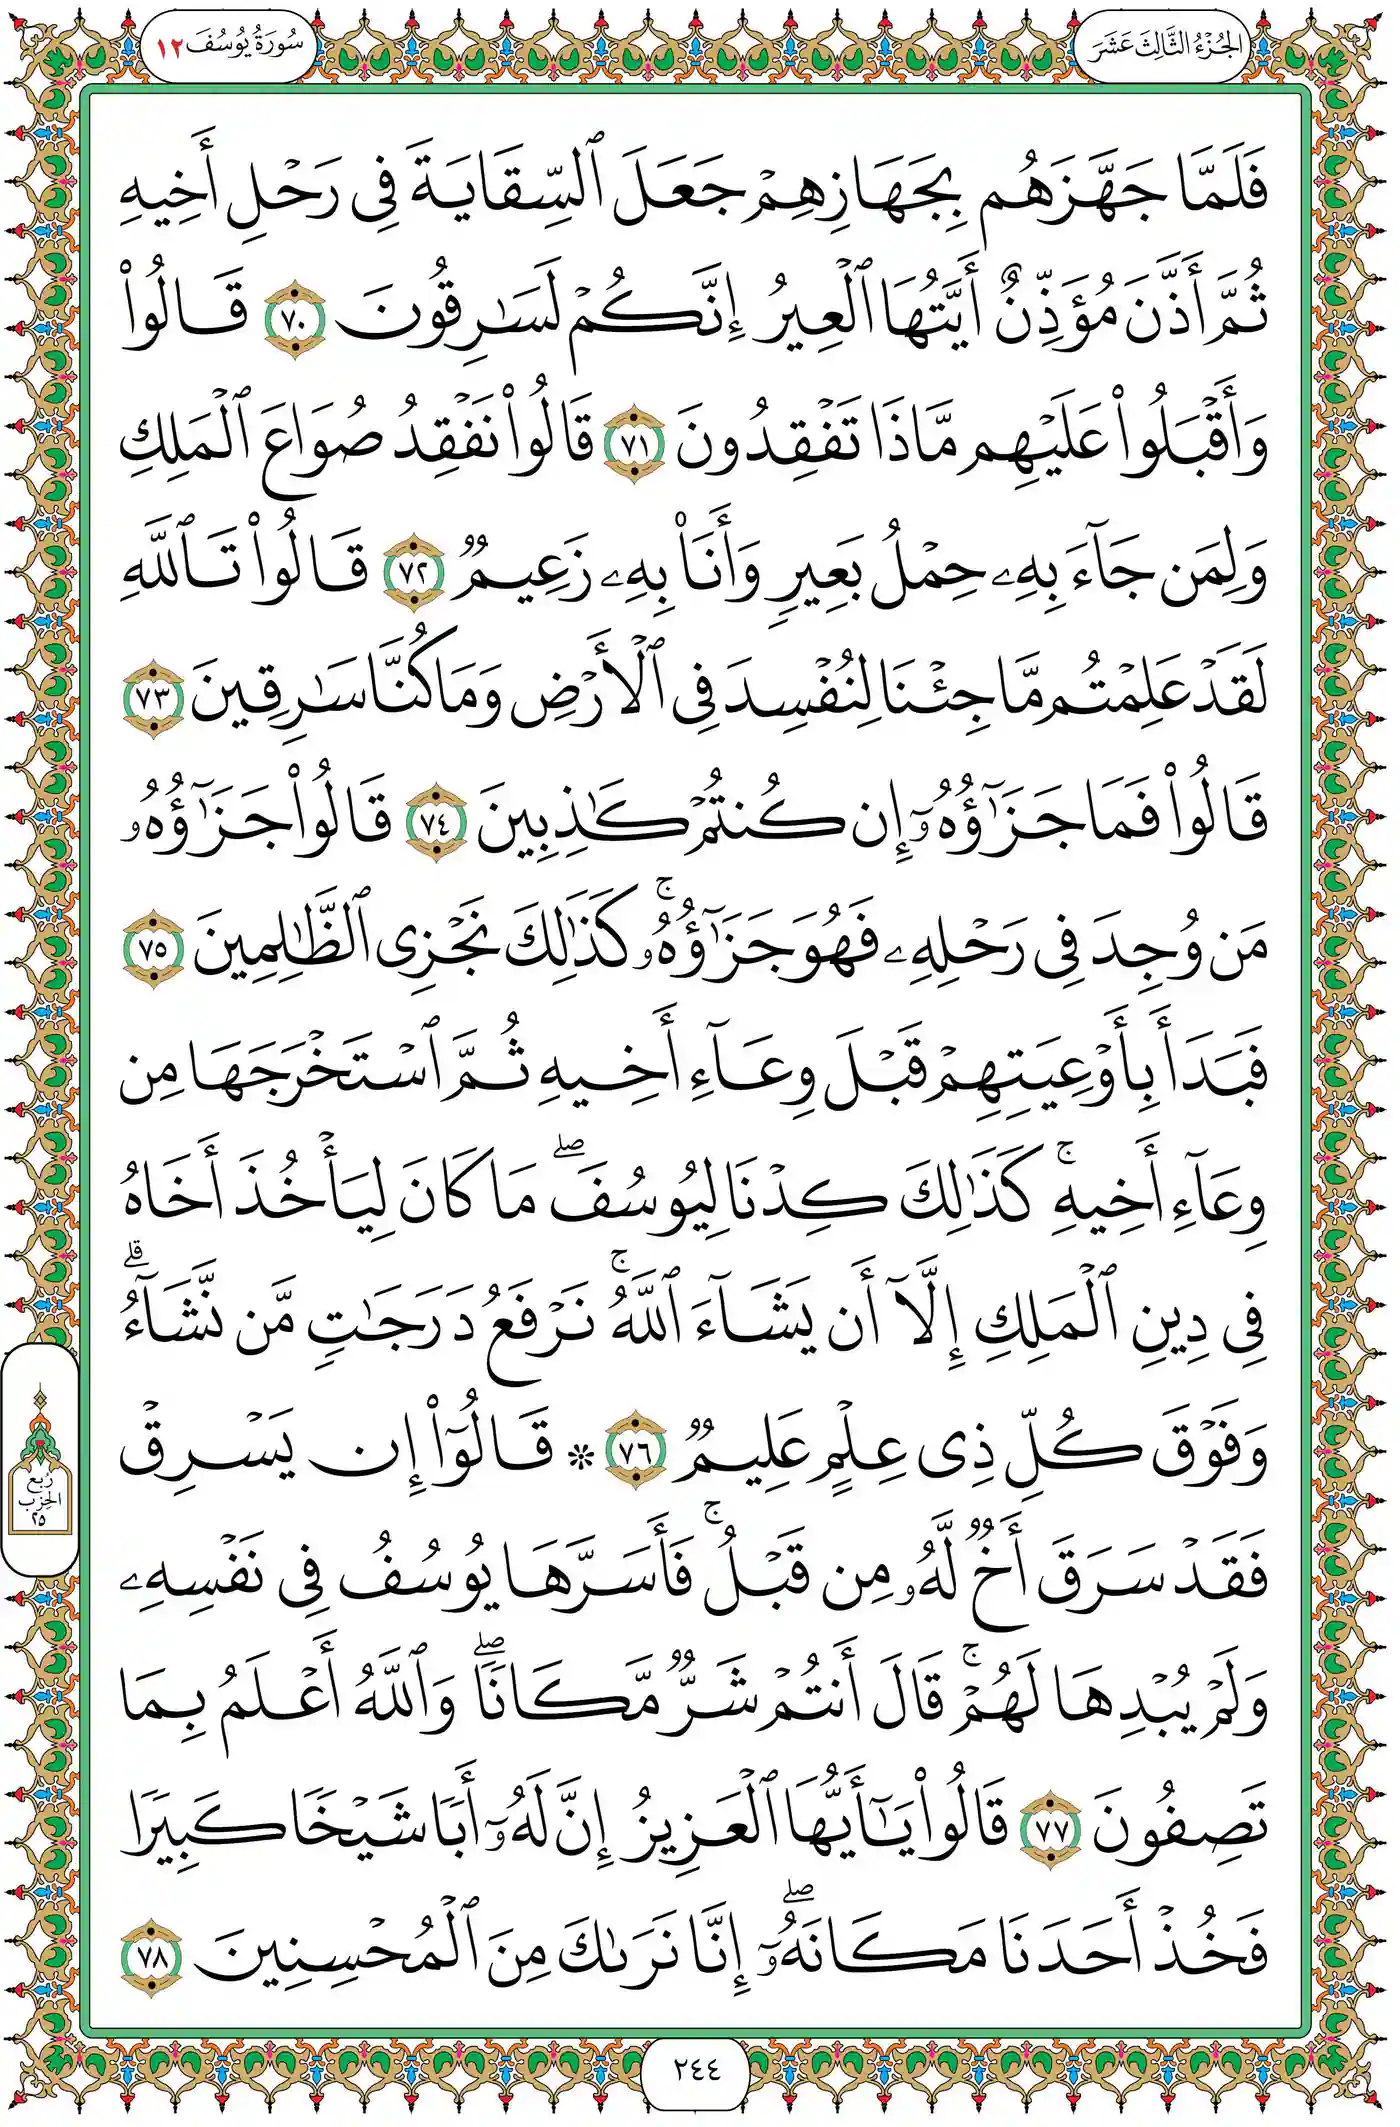 الجُزْءُ الثَّالِثَ عَشَرَ
سُورَةُ يُوسُفَ ١٢
فَلَمَّا جَهَّزَهُم بِجَهَازِهِمْ جَعَلَ ٱلسِّقَايَةَ فِى رَحْلِ أَخِيهِ
ثُمَّ أَذَّنَ مُؤَذِّنٌ أَيَّتُهَا ٱلْعِيرُ إِنَّكُمْ لَسَـٰرِقُونَ ٧٠ قَالُوا۟
وَأَقْبَلُوا۟ عَلَيْهِم مَّاذَا تَفْقِدُونَ ٧١ قَالُوا۟ نَفْقِدُ صُوَاعَ ٱلْمَلِكِ
وَلِمَن جَآءَ بِهِۦ حِمْلُ بَعِيرٍ وَأَنَا۠ بِهِۦ زَعِيمٌ ٧٢ قَالُوا۟ تَٱللَّهِ
لَقَدْ عَلِمْتُم مَّا جِئْنَا لِنُفْسِدَ فِى ٱلْأَرْضِ وَمَا كُنَّا سَـٰرِقِينَ ٧٣
قَالُوا۟ فَمَا جَزَٰٓؤُهُۥٓ إِن كُنتُمْ كَـٰذِبِينَ ٧٤ قَالُوا۟ جَزَٰٓؤُهُۥ
مَن وُجِدَ فِى رَحْلِهِۦ فَهُوَ جَزَٰٓؤُهُۥ ۚ كَذَٰلِكَ نَجْزِى ٱلظَّـٰلِمِينَ ٧٥
فَبَدَأَ بِأَوْعِيَتِهِمْ قَبْلَ وِعَآءِ أَخِيهِ ثُمَّ ٱسْتَخْرَجَهَا مِن
وِعَآءِ أَخِيهِ ۚ كَذَٰلِكَ كِدْنَا لِيُوسُفَ ۖ مَا كَانَ لِيَأْخُذَ أَخَاهُ
فِى دِينِ ٱلْمَلِكِ إِلَّآ أَن يَشَآءَ ٱللَّهُ ۚ نَرْفَعُ دَرَجَـٰتٍ مَّن نَّشَآءُ ۗ
وَفَوْقَ كُلِّ ذِى عِلْمٍ عَلِيمٌ ٧٦ * قَالُوٓا۟ إِن يَسْرِقْ
فَقَدْ سَرَقَ أَخٌ لَّهُۥ مِن قَبْلُ ۚ فَأَسَرَّهَا يُوسُفُ فِى نَفْسِهِۦ
وَلَمْ يُبْدِهَا لَهُمْ ۚ قَالَ أَنتُمْ شَرٌّ مَّكَانًا ۖ وَٱللَّهُ أَعْلَمُ بِمَا
تَصِفُونَ ٧٧ قَالُوا۟ يَـٰٓأَيُّهَا ٱلْعَزِيزُ إِنَّ لَهُۥٓ أَبًا شَيْخًا كَبِيرًا
فَخُذْ أَحَدَنَا مَكَانَهُۥٓ ۖ إِنَّا نَرَىٰكَ مِنَ ٱلْمُحْسِنِينَ ٧٨
رُبع
الحِزب
٢٥
٢٤٤